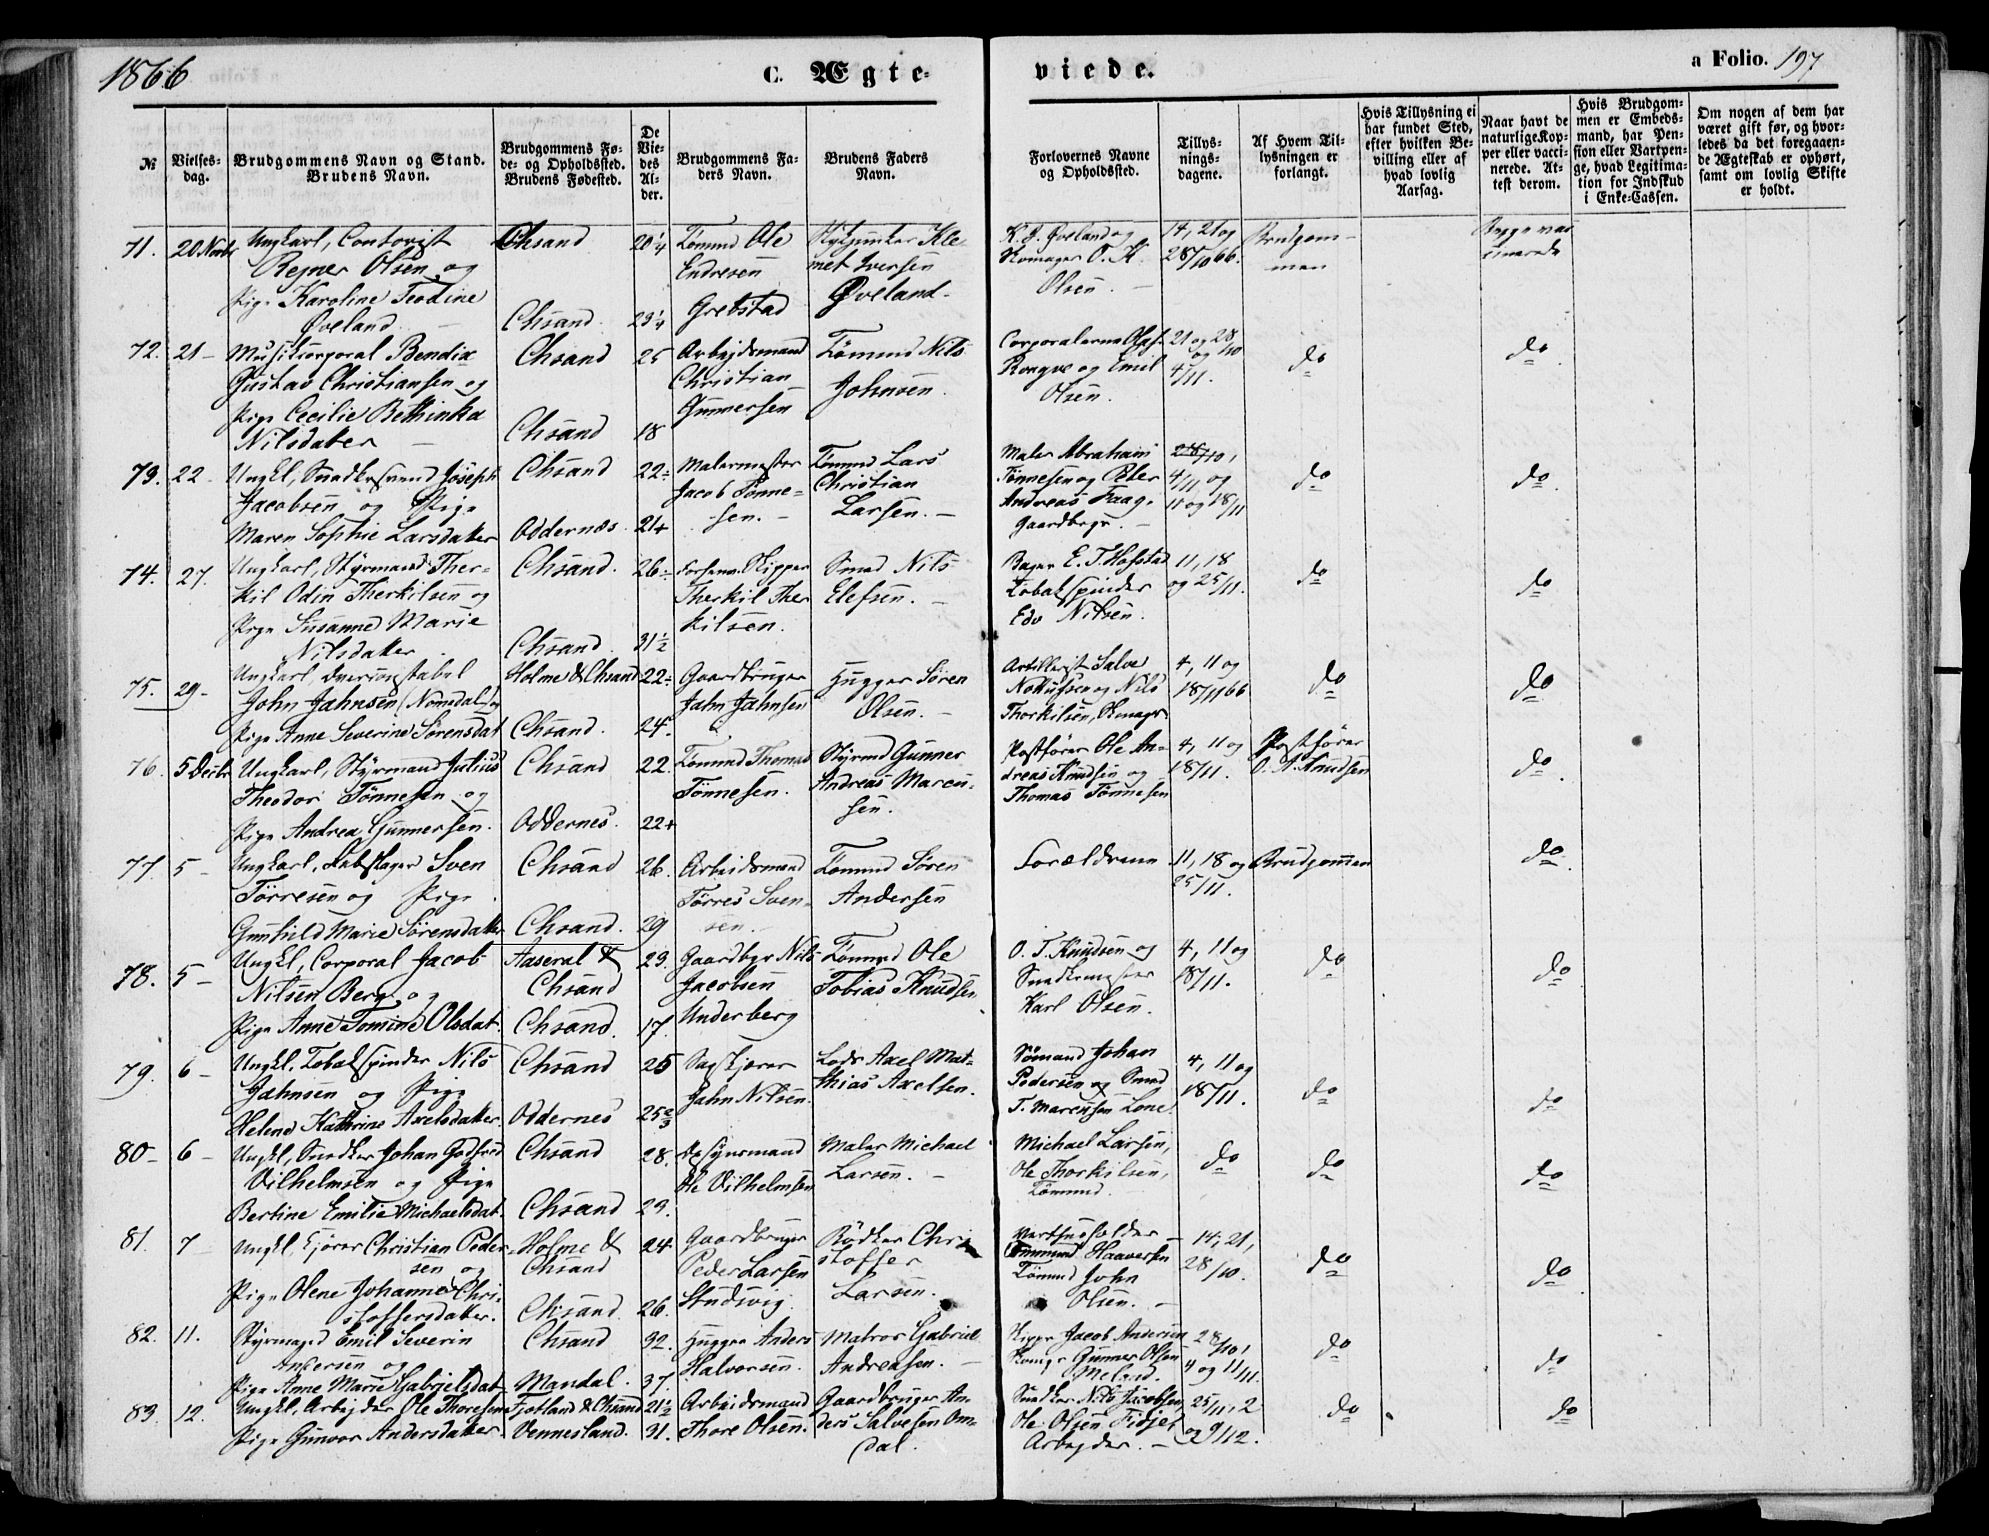 1866
C. Ægte-
viede.
a Folio. 197
№
Vielses-
dag.
Brudgommens Navn og Stand.
Brudens Navn.
Brudgommens Fø-
de- og Opholdssted.
Brudens Fødested.
De
Vie-
des
Al-
der.
Brudgommens Fa-
ders Navn.
Brudens Faders
Navn.
Forlovernes Navne
og Opholdssted.
Tillys-
nings-
dagene.
Af Hvem Til-
lysningen er
forlangt.
Hvis Tillysning ei
har fundet Sted,
efter hvilken Be-
villing eller af
hvad lovlig
Aarsag.
Naar havt de
naturlige Kop-
per eller vacci-
nerede. At-
test derom.
Hvis Brudgom-
men er Embeds-
mand, har Pen-
sion eller Vartpen-
ge, hvad Legitima-
tion for Indskud
i Enke-Cassen.
Om nogen af dem har
været gift før, og hvor-
ledes da det foregaaen-
de Ægteskab er ophørt,
samt om lovlig Skifte
er holdt.
71. 20 Novbr
Ungkarl, Contorist
Rejner Olsen og
Pige Karoline Teodine
Øveland
Chsand
Chsand
20¼
23¼
Tømmd Ole
Endresen
Grebstad
Klemet Iversen
Øveland
K. J. Øveland og
O. K.
Olsen.
14, 21 og
28/10 66.
Brudgom-
men
72. 21 -
Musikcorporal Bendix
Gustav Christiansen og
Pige Cecilie Bethinka
Nilsdatter
Chsand
Chsand
25
18
Arbejdsmand
Christian
Gunnersen
Tømmd Nils
Johnsen.
Corporalerne
Rongve og Emil
Olsen.
21 og 28/10
og
4/11.
do
do
73. 22 -
Ungkl, Snedkersvend Joseph
Jacobsen og Pige
Maren Sophie Larsdatter
Chsand
Oddernæs
22
21+
Malermester
Jacob Tønne-
sen.
Tømmd Lars
Christian
Larsen.
Maler Abraham
Tønnesen og Peter
Andreas Faag.
Gaardbrgr.
28/10,
4/11 og
11 og 18/11
do
do
74. 27.
Ungkarl, Styrmand Ther-
kil Odin Therkilsen og
Pige Susanne Marie
Nilsdatter
Chsand.
Chsand.
26
31½
Skipper
Therkil Ther
kilsen.
Smed Nils
Elefsen.
Bager E. T. Hofstad
Tobakspinder
Edv Nilsen.
11, 18
og 25/11.
do
do
75. 29 -
Ungkarl,
John Jahnsen (Nomedal) og
Pige Anne Severine Sørensdat
Holme & Chsand
Chsand.
22
24.
Gaardbruger
Jahn Jahnsen
Hugger Søren
Olsen.
Artillerist Salve
og Nils
Thorkilsen,
4, 11 og
18/11 66
do
do
76. 5 Decbr
Ungkarl, Styrmand Julius
Theodor Tønnesen og
Pige Andrea Gunnersen.
Chsand
Oddernes.
22.
22+
Tømmd Thomas
Tønnesen.
Styrmd Gunner
Andreas Marcu-
sen.
Postfører Ole An-
dreas Knudsen og
Thomas Tønnesen
4, 11 og
18/11.
Postfører
O. A. Knudsen
do
77. 5 -
Ungkarl, Rebslager Sven
Tørresen og Pige
Gunhild Marie Sørensdatter
Chsand
Chsand.
26.
29
Arbeidsmand
Tørres Sven-
sen.
Tømmd Søren
Andersen
Forældrene
11, 18 og
25/11.
Brudgommen
do
78. 5 -
Ungkl, Corporal Jacob
Nilsen Berg og
Pige Anne Tomine Olsdat.
Aaseral &
Chsand
Chsand.
23.
17.
Gaardbgr Nils
Jacobsen
Underberg
Tømmd Ole
Tobias Knudsen
O. T. Knudsen og
Snedkermester
Karl Olsen.
4, 11 og
18/11.
do
do
79. 6 -
Ungkl. Tobakspinder Nils
Jahnsen og Pige
Helene Kathrine Axelsdatter
Chsand
Oddernes
25
25⅔
Sagskjærer
Jahn Nilsen.
Lods Axel Mat-
thias Axelsen.
Sømand Johan
Pedersen og Smed
T. Marcusen Lone
4, 11 og
18/11.
do
do
80 - 6 -
Ungkl, Snedker Johan Godfred
Vilhelmsen og Pige
Bertine Emilie Michaelsdat.
Chsand
Chsand
28.
23.
Opsynsmand
Ole Vilhelmsen
Maler Michael
Larsen.
Michael Larsen,
Ole Thorkilsen,
Tømmd.
do
do
do
81. 7
Ungkl. Kjører Christian Peder-
sen og
Pige Olene Johanne Chri-
stoffersdatter.
Holme &
Chsand
Chsand.
24
26.
Gaardbruger
Peder Larsen
Studsvig.
Bødker Chri
stoffer
Larsen.
Vertshusholder
Haaversen
Tømmd John
Olsen.
14, 21,
28/10.
do
do
82. 11.
Styrmand Emil Severin
Andersen og
Pige Anne Marie Gabrielsdat
Chsand
Mandal.
32.
37.
Hugger Anders
Halvorsen.
Matros Gabriel
Andreasen.
Skippr Jacob Andersen
Gunner Olsen
28/10,
4 og 11/11.
do
do
83. 12.
Ungkl, Arbejder Ole Thoresen
Pige Gunvor Andersdatter
Fjotland & Chsand
Vennesland.
21½
31.
Arbeidsmand
Thore Olsen.
Gaardbruger An-
ders Salvesen Om-
dal.
Snedker Nils Jacobsen,
Ole Olsen Fidje,
Arbejder.
25/11, 2
og 9/12.
do
do